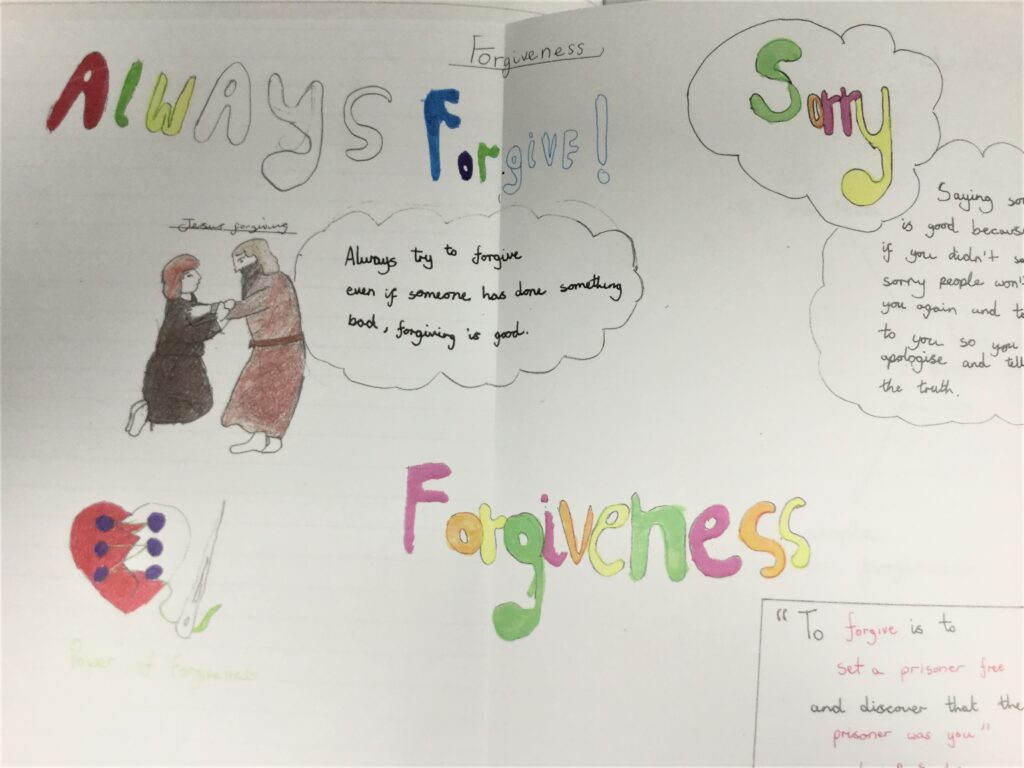 Forgiveness
Always Forgive!
Sorry
Jesus forgiving
Always try to forgive
even if someone has done something
bad, forgiving is good.
Saying
is good
if you didn't
sorry people won't
you again and
to you so you
apologise and tell
the truth.
Forgiveness
Power of Forgiveness
"To forgive is to
set a prisoner free
and discover that the
prisoner was you"